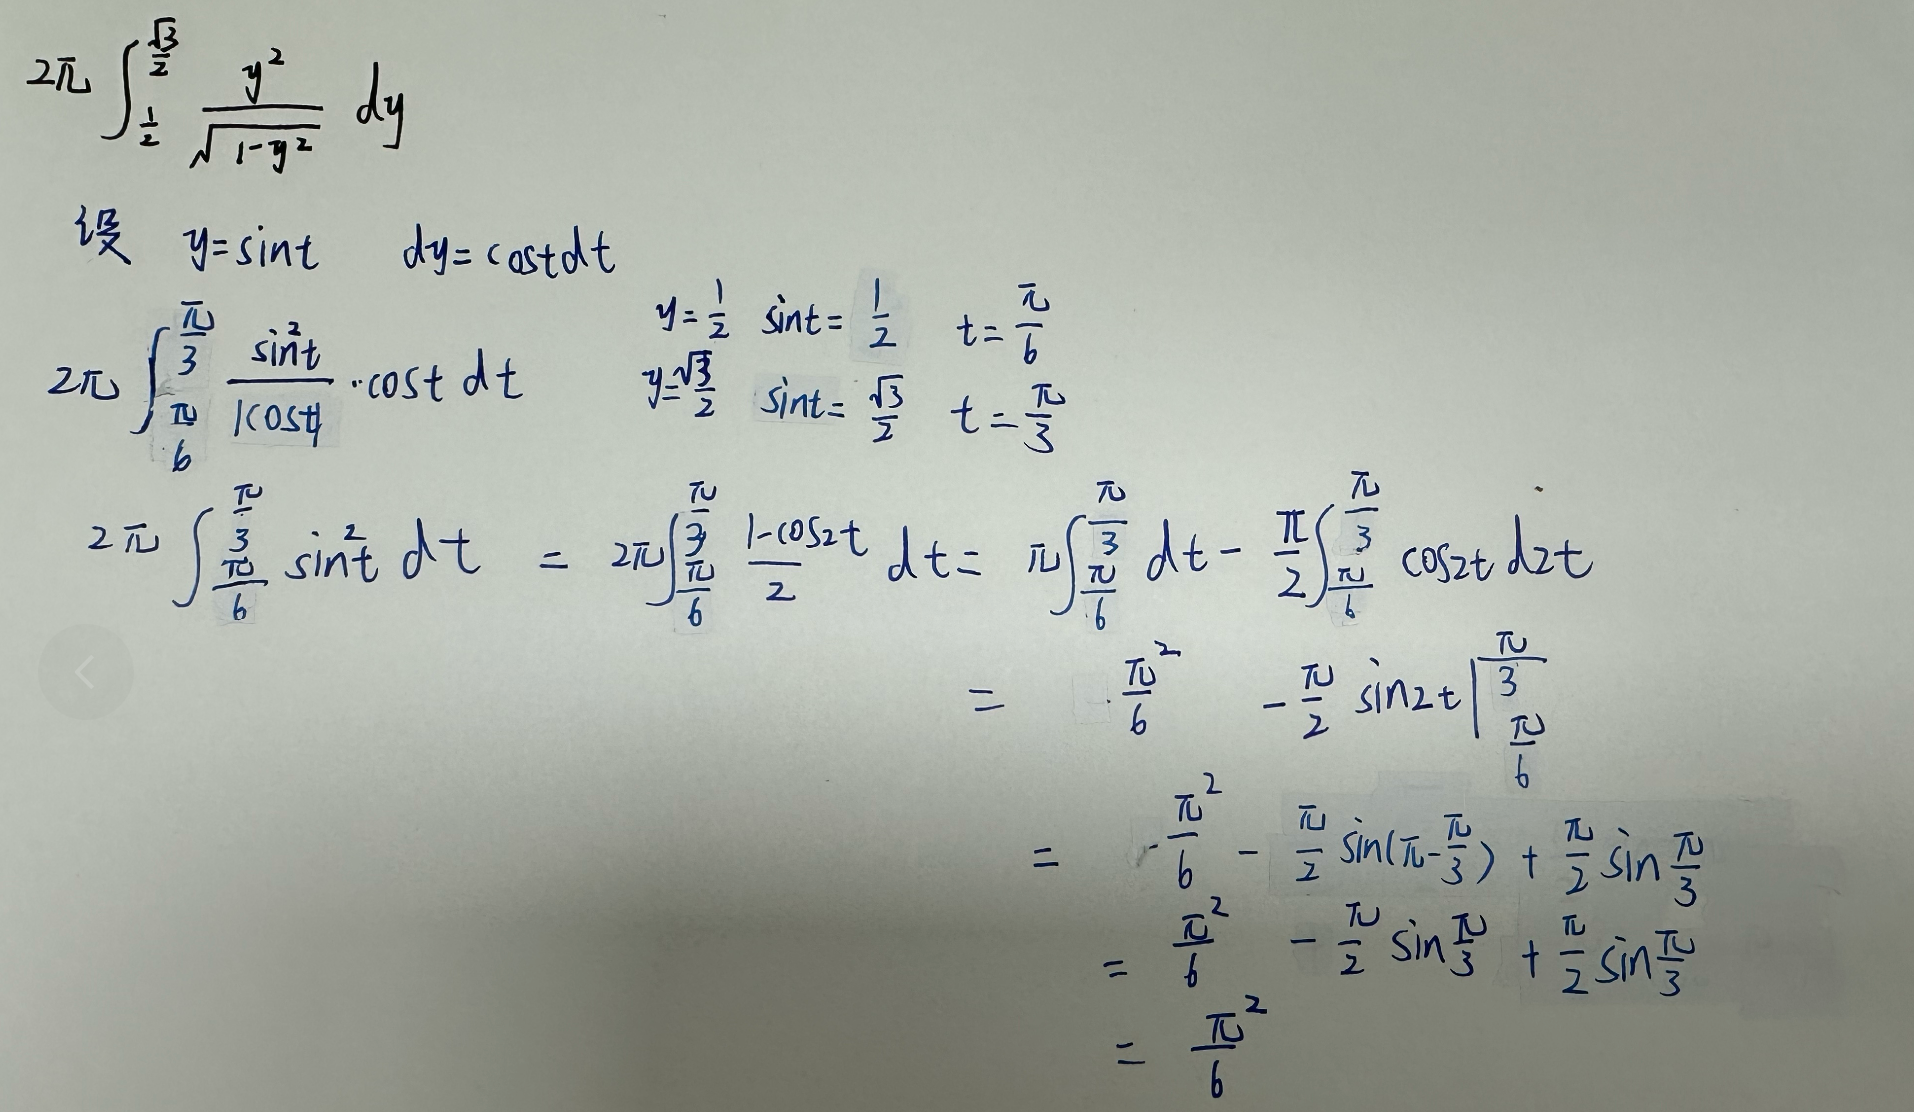 2π ∫_{1/2}^{√3/2} y²/√(1-y²) dy
设 y=sint dy=costdt
y=1/2 sint=1/2 t=π/6
2π ∫_{π/6}^{π/3} sin²t/|cost| ·cost dt
y=√3/2 sint=√3/2 t=π/3
2π ∫_{π/6}^{π/3} sin²t dt = 2π ∫_{π/6}^{π/3} (1-cos2t)/2 dt = π ∫_{π/6}^{π/3} dt - π/2 ∫_{π/6}^{π/3} cos2t d2t
= π²/6 - π/2 sin2t |_{π/6}^{π/3}
= π²/6 - π/2 sin(π-π/3) + π/2 sin π/3
= π²/6 - π/2 sin π/3 + π/2 sin π/3
= π²/6